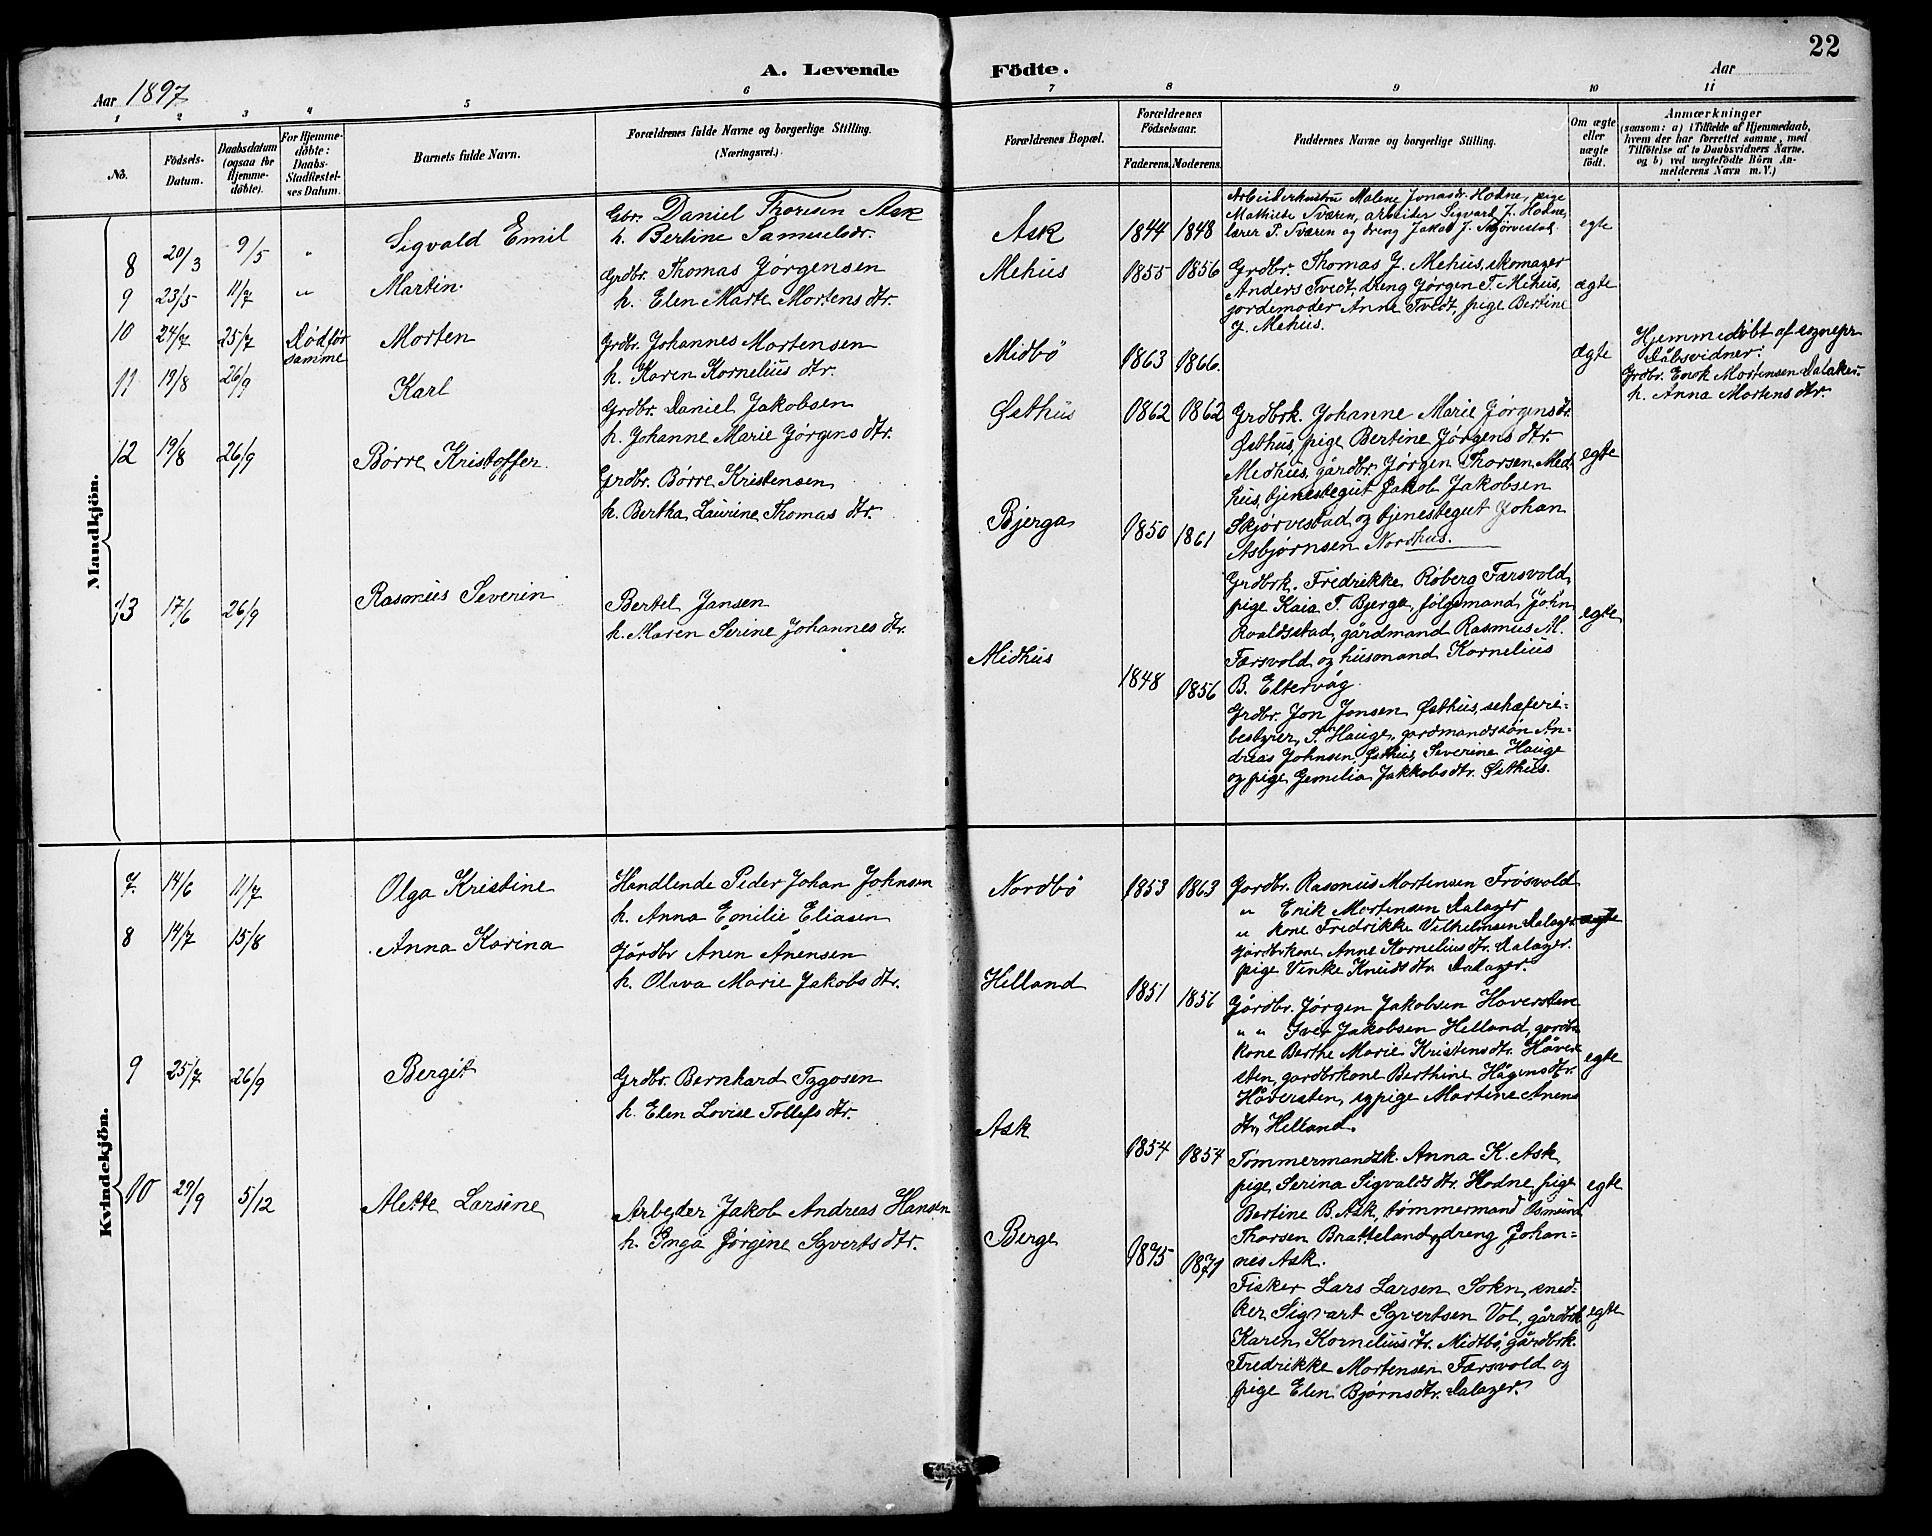 22
A. Levende Födte.
Aar 1897
Aar
1 2 3 4 5 6 7 8 9 10 11
No.
Födsels-Datum.
Daabsdatum (ogsaa for Hjemme-döbte).
For Hjemme-döbte: Daabs-Stadfæstel-ses Datum.
Barnets fulde Navn.
Forældrenes fulde Navne og borgerlige Stilling. (Næringsvei.)
Forældrenes Bopæl.
Forældrenes Födselsaar.
Faderens. Moderens.
Faddernes Navne og borgerlige Stilling.
Om ægte eller uægte födt.
Anmærkninger (saasom: a) i Tilfælde af Hjemmedaab, hvem der har forrettet samme, med Tilföielse af to Daabsvidners Navne, og b) ved uægtefödte Börn An-melderens Navn m. V.)
Mandkjön.
8 20/3 9/5 " Sigvald Emil
Gbr. Daniel Thorsen Ask
h. Bertine Samuelsdr.
Ask 1844 1848
Arbeiderhustru Malene Jonasdr. Hodne, pige
Mathilde Sværen, arbeider Sigvart J. Hodne,
lærer P. Sværen og dreng Jakob J. Skjørvestad.
egte
9 23/5 11/7 " Martin
Grdbr. Thomas Jørgensen
h. Elen Marte Mortensdtr.
Mehus 1855 1856
Grdbr. Thomas J. Mehus, skomager
Anders Tvedt, dreng Jørgen T. Mehus,
jordemoder Anne Tvedt, pige Bertine
J. Mehus.
ægte
10 24/7 25/7 Dødfør samme Morten
Grdbr. Johannes Mortensen
h. Karen Kornelius dtr.
Midbö 1863 1866.
ægte
Hjemmedöbt af sognepr.
Dåbsvidner:
Grdbr. Enok Mortensen Dalaker.
h. Anna Mortens dtr.
11 19/8 26/9 Karl
Grdbr. Daniel Jakobsen
h. Johanne Marie Jörgens dtr.
Østhus 1862 1862
Grdbrk. Johanne Marie Jörgensdr.
Østhus, pige Bertine Jörgens dtr.
Midhus, gårdbr. Jörgen Thorsen Mid-
hus, tjenestegut Jakob Jakobsen
Skjörvestad og tjenestegut Johan
Asbjørnsen Nordhus.
egte
12 19/8 26/9 Børre Kristoffer.
Grdbr. Børre Kristensen
h. Bertha Laurine Thomas dtr.
Bjerga 1850 1861
Grdbrk. Fredrikke Röberg Færsvold,
pige Kaia T. Bjerga, følgemand John
Roaldsstad, gårdmand Rasmus M.
Færsvold og husmand Kornelius
B. Eltervåg.
egte
13 17/6 26/9 Rasmus Severin
Bertel Jansen
h. Maren Serine Johannes dtr.
Midhus 1848 1856
Grdbr. Jon Jonsen Østhus, schæferie-
bestyrer S. Hauge, gardmandssön An-
dreas Johnsen Østhus, Severine Hauge
og pige Gemelia Jakkobsdtr. Østhus.
Kvindekjön.
7. 14/6 11/7 Olga Kristine
Handlende Peder Johan Johnsen
h. Anna Emilie Eliasen
Nordbö 1853 1863
Gardbr. Rasmus Mortensen Frösvold
" Enik Mortensen Dalager
" kone Fredrikke Vilhelmsen Dalager
Gårdbrkone Anne Kornelius dtr. Dalager.
pige Vinke Knuds dtr. Dalager.
ægte
8 14/7 15/8 Anna Karina
Gårdbr Ånen Ånensen
h. Olava Marie Jakobs dtr.
Helland 1851 1856
Gårdbr. Jørgen Jakobsen Haversten
" " Iver Jakobsen Helland, gardbr
kone Berthe Marie Kristensdtr. Håver-
sten, gardbrkone Berthine Hågens dtr.
Håversten, og pige Martine Anens
dtr. Helland.
egte
9 25/7 26/9 Bergit
Grdbr. Bernhard Tygosen
h. Elen Lovise Tollefs dtr.
Ask 1854 1854
Tømmermandsk. Anna K. Ask
pige Serina Sigvalds dtr. Hodne, pige
Bertine B. Ask, tømmermand Osmund
Thorsen Bratteland og dreng Johan-
nes Ask.
egte
10 29/9 5/12 Alette Larsine
Arbejder Jakob Andreas Hansen
h. Inga Jörgine Syverts dtr.
Berge 1875 1871
Fisker Lars Larsen Sokn, sned-
ker Sigvart Syvertsen Vol, gårdbrk
Karen Kornelius dr. Midtbö, gårdbrk.
Fredrikke Mortensen Færsvold og
pige Elen Bjørnsdtr. Dalager.
egte